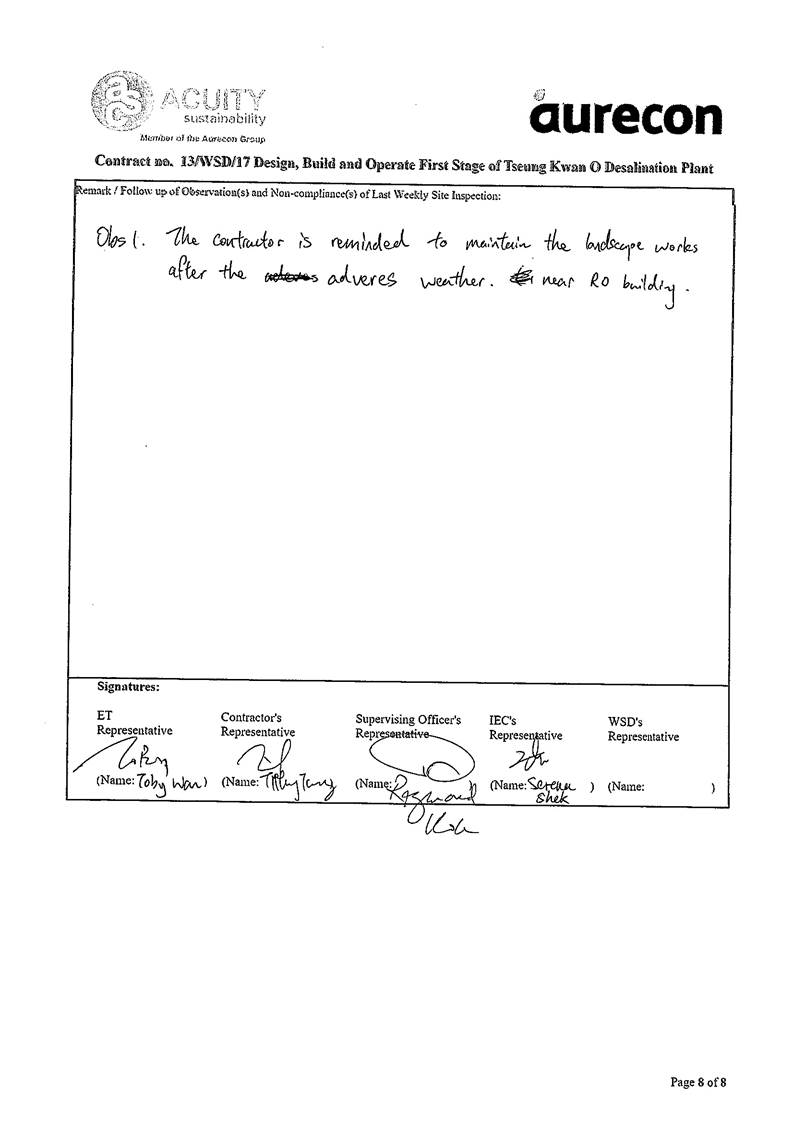 ACUITY
sustainability
Member of the Aurecon Group
aurecon
Contract no. 13/WSD/17 Design, Build and Operate First Stage of Tseung Kwan O Desalination Plant
Remark / Follow up of Observation(s) and Non-compliance(s) of Last Weekly Site Inspection:
Obs 1. The contractor is reminded to maintain the landscape works
after the adveres weather. near RO building.
Signatures:
ET Representative
Contractor's Representative
Supervising Officer's Representative
IEC's Representative
WSD's Representative
(Name: Toby Wan)
(Name:
(Name: Raymond
(Name: Serena Shek )
(Name: )
Page 8 of 8